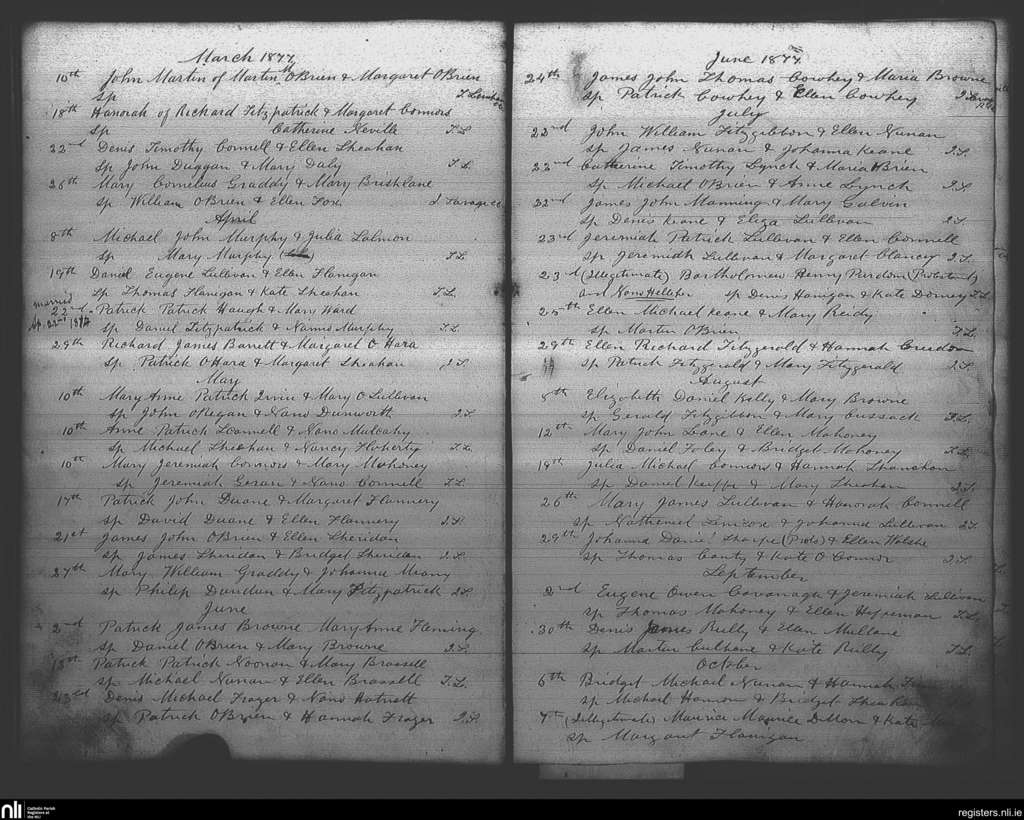 March 1877
10th John Martin of Martin O'Brien & Margaret O'Brien
sp
18th Hanorah of Richard Fitzpatrick & Margaret Connors
sp Catherine Neville T.S.
22nd Denis Timothy Connell & Ellen Sheahan
sp John Duggan & Mary Daly T.S.
26th Mary Cornelius Graddy & Mary Brishlane
sp William O'Brien & Ellen Fox
April
8th Michael John Murphy & Julia Salmon
sp Mary Murphy T.S.
19th Daniel Eugene Sullivan & Ellen Flanigan
sp Thomas Flanigan & Kate Sheahan T.S.
married
22nd Patrick Patrick Haugh & Mary Ward
sp Daniel Fitzpatrick & Nanno Murphy T.S.
29th Richard James Barrett & Margaret O Hara
sp Patrick O Hara & Margaret Sheahan T.S.
May
10th Mary Anne Patrick Irvin & Mary O Sullivan
sp John O Regan & Nano Dunworth T.S.
10th Anne Patrick & Nano Mulcahy
sp Michael Sheahan & Nancy Floherty T.S.
10th Mary Jeremiah Connors & Mary Mahoney
sp Jeremiah Geran & Nano Connell T.S.
17th Patrick John Duane & Margaret Flannery
sp David Duane & Ellen Flannery T.S.
21st James John O'Brien & Ellen Sheridan
sp James Sheridan & Bridget Sheridan T.S.
27th Mary William Graddy & Johanna Meany
sp Philip Dundan & Mary Fitzpatrick T.S.
June
2nd Patrick James Browne Mary Anne Fleming
sp Daniel O'Brien & Mary Browne T.S.
18th Patrick Patrick Noonan & Mary Brassell
sp Michael Nunan & Ellen Brassell T.S.
23rd Denis Michael Frazer & Nano
sp Patrick O'Brien & Hannah Frazer T.S.
June 1877
24th James John Thomas Cowhey & Maria Browne
sp Patrick Cowhey & Ellen Cowhey
July
22nd John William Fitzgibbon & Ellen Nunan
sp James Nunan & Johanna Keane T.S.
22nd Catherine Timothy Lynch & Maria O'Brien
sp Michael O'Brien & Anne Lynch T.S.
22nd James John Manning & Mary Galvin
sp Denis Keane & Eliza Sullivan T.S.
23rd Jeremiah Patrick Sullivan & Ellen Connell
sp Jeremiah Sullivan & Margaret Clancey T.S.
23rd (Illegitimate) Bartholomew Henry Purdon (Protestant)
and Nono sp Denis Hanigan & Kate Downey T.S.
25th Ellen Michael Keane & Mary Reidy
sp Martin O'Brien T.S.
29th Ellen Richard Fitzgerald & Hannah
sp Patrick Fitzgerald & Mary Fitzgerald T.S.
August
5th Elizabeth Daniel Kelly & Mary Browne
sp Gerald Fitzgibbon & Mary Cussack T.S.
12th Mary John Leane & Ellen Mahoney
sp Daniel Foley & Bridget Mahoney T.S.
19th Julia Michael Connors & Hannah Shanahan
sp Daniel Keeffe & Mary Sheahan T.S.
26th Mary James Sullivan & Hanorah Connell
sp Nathaniel & Johanna Sullivan T.S.
29th Johanna Daniel Sharpe (Prots) & Ellen Walshe
sp Thomas Canty & Kate O Connor T.S.
September
2nd Eugene Owen Cavanagh & Jeremiah Sullivan
sp Thomas Mahoney & Ellen Heffernan T.S.
30th Denis James Reilly & Ellen Mullane
sp Martin Culhane & Kate Reilly T.S.
October
6th Bridget Michael Nunan & Hannah
sp Michael Hannon & Bridget
7th (Illegitimate) Maurice Maurice & Kate
sp Margaret Flanigan
nli Catholic Parish
Registers at
the NLI
registers.nli.ie